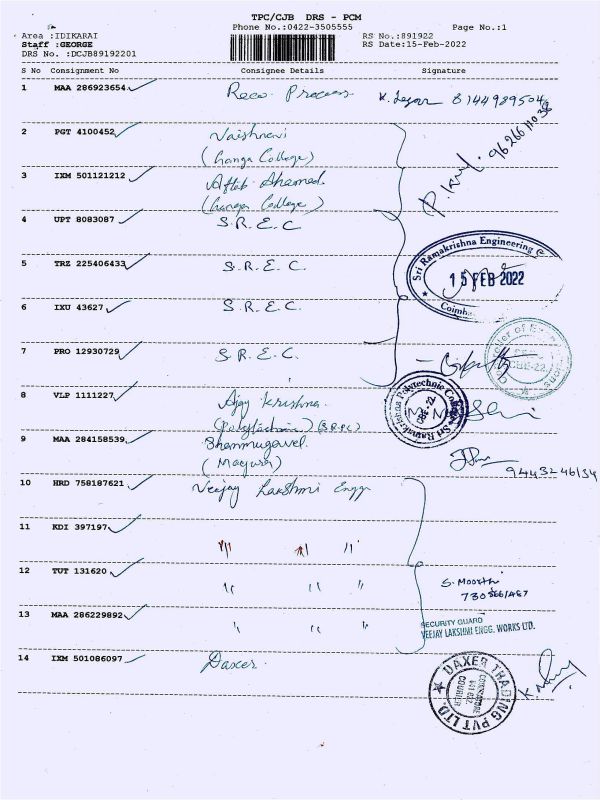 TPC/CJB DRS - PCM
Phone No.:0422-3505555 Page No.:1
Area :IDIKARAI RS No.:891922
Staff :GEORGE RS Date:15-Feb-2022
DRS No. :DCJB89192201
S No Consignment No Consignee Details Signature
1 MAA 286923654 Reco Process
2 PGT 4100452 Vaishnavi
(Ganga College)
3 IXM 501121212 Aftab Ahamed
(Ganga College)
4 UPT 8083087 S.R.E.C
5 TRZ 225406433 S.R.E.C.
Sri Ramakrishna Engineering
15 FEB 2022
6 IXU 43627 S.R.E.C.
7 PRO 12930729 S.R.E.C.
CBE-22
8 VLP 1111227 Ajay Krishna
(Polytechnic)
Sri Ramakrishna Polytechnic College
CBE-22
9 MAA 284158539 Shanmugavel
(Mayura)
9443246134
10 HRD 758187621 Veejay Lakshmi Engg
11 KDI 397197 " " "
12 TUT 131620 " " "
S. Moorthi
13 MAA 286229892 " " "
SECURITY GUARD
VEEJAY LAKSHMI ENGG. WORKS LTD.
14 IXM 501086097 Daxer
DAXER THADING PVT LTD.
COIMBATORE
641 032.
COURIER